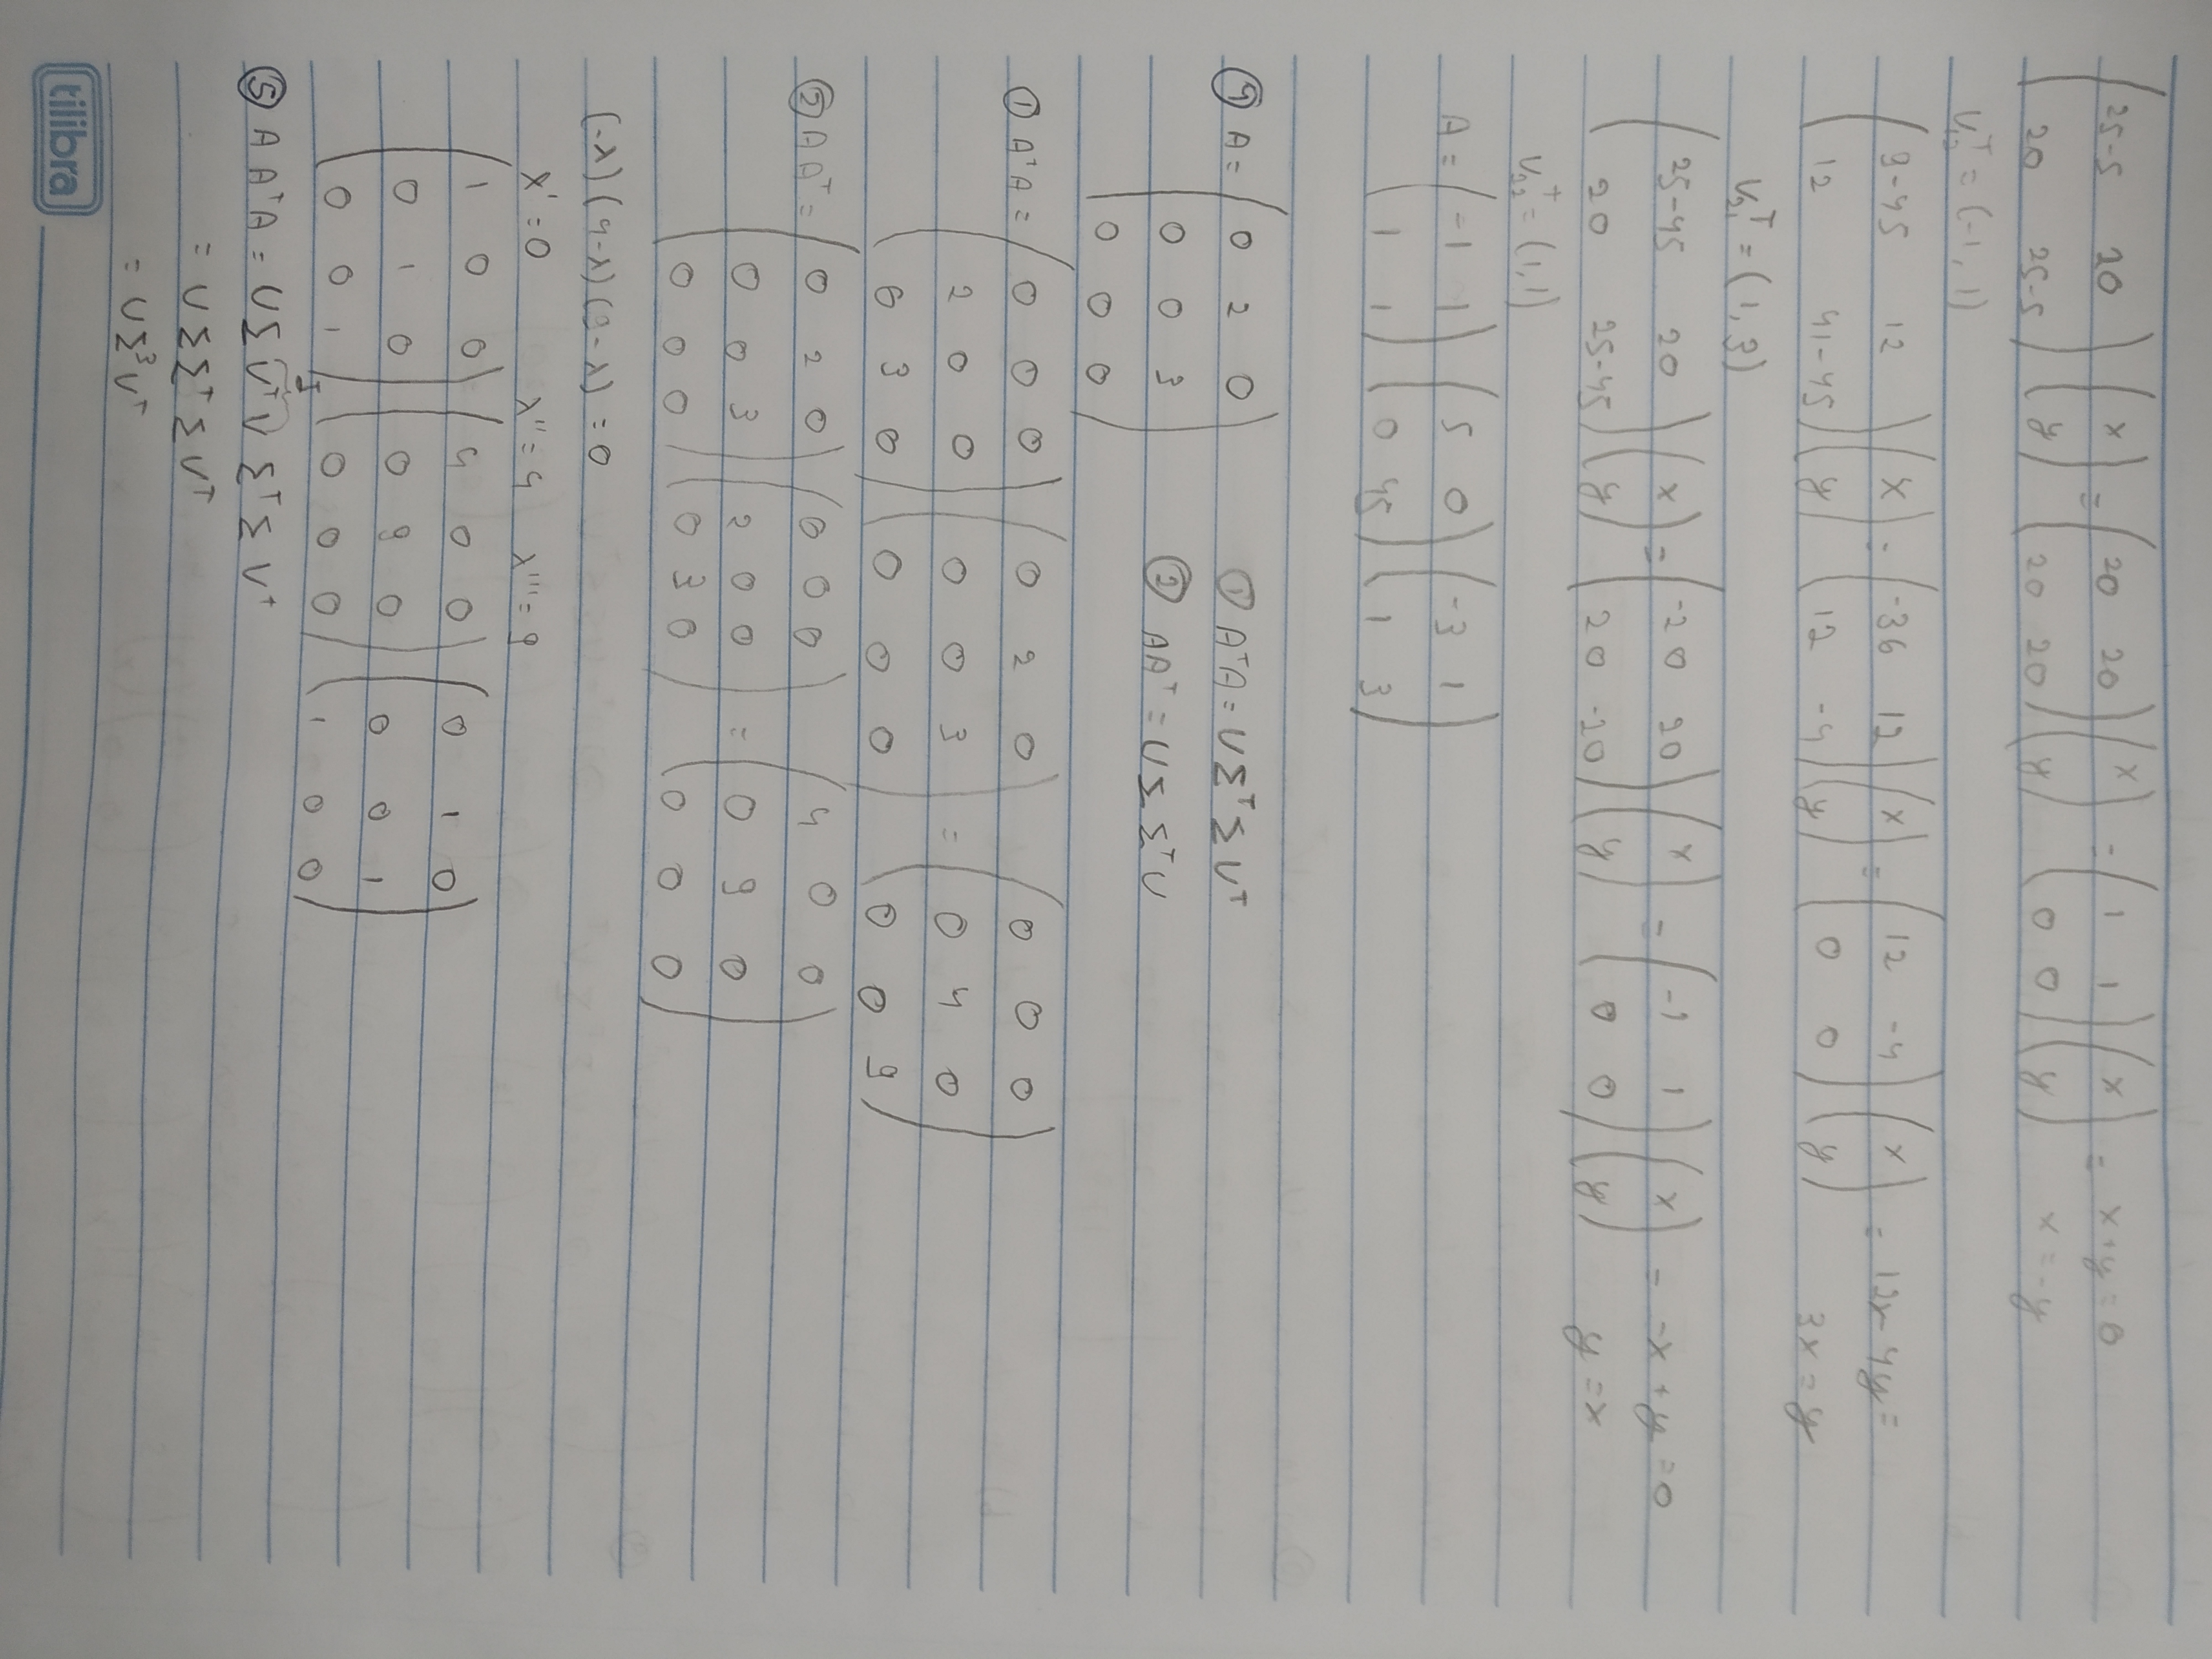 (25-5 20 / 20 25-5) (x / y) = (20 20 / 20 20) (x / y) = (1 1 / 0 0) (x / y) = x+y=0
x=-y
V₁₂ᵀ = (-1, 1)
(9-45 12 / 12 41-45) (x / y) = (-36 12 / 12 -4) (x / y) = (12 -4 / 0 0) (x / y) = 12x-4y=
3x=y
V₂₁ᵀ = (1, 3)
(25-45 20 / 20 25-45) (x / y) = (-20 20 / 20 -20) (x / y) = (-1 1 / 0 0) (x / y) = -x+y=0
y=x
V₂₂ᵀ = (1,1)
A = (-1 1 / 1 1) (5 0 / 0 45) (-3 1 / 1 3)
④ A = (0 2 0 / 0 0 3 / 0 0 0) ① AᵀA = VΣᵀΣVᵀ
② AAᵀ = UΣΣᵀU
① AᵀA = (0 0 0 / 2 0 0 / 0 3 0) (0 2 0 / 0 0 3 / 0 0 0) = (0 0 0 / 0 4 0 / 0 0 9)
② AAᵀ = (0 2 0 / 0 0 3 / 0 0 0) (0 0 0 / 2 0 0 / 0 3 0) = (4 0 0 / 0 9 0 / 0 0 0)
(-λ)(4-λ)(9-λ)=0
λ'=0 λ''=4 λ'''=9
(1 0 0 / 0 1 0 / 0 0 1) (4 0 0 / 0 9 0 / 0 0 0) (0 1 0 / 0 0 1 / 1 0 0)
I
⑤ AAᵀA = UΣVᵀVΣᵀΣVᵀ
= UΣΣᵀΣVᵀ
= UΣ³Vᵀ
tilibra